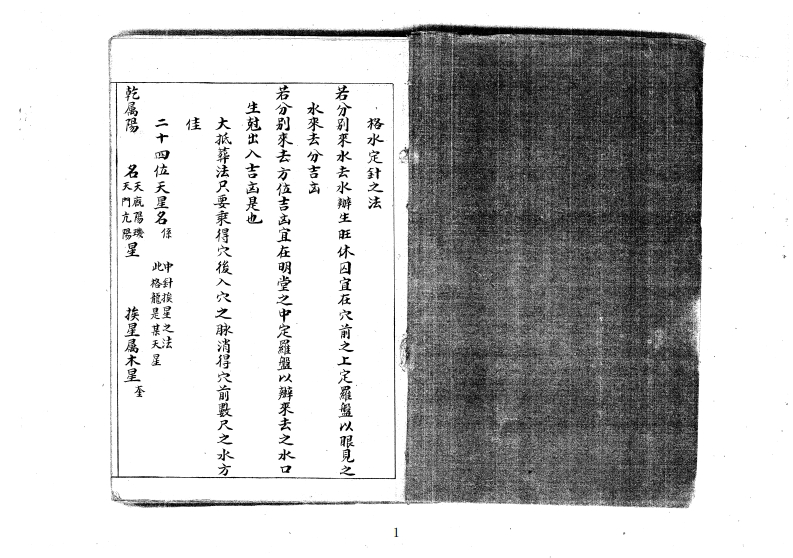 格水定針之法
若分別來水去水辦生旺休囚宜在穴前之上定羅盤以眼見之
水來去分吉凶
若分別來去方位吉凶宜在明堂之中定羅盤以辦來去之水口
生尅出入吉凶是也
大抵葬法只要乘得穴後入穴之脉消得穴前數尺之水方
佳
二十四位天星名係 中針挨星之法
此格龍是某天星
乾属陽 名天廐陽璣
天門亢陽星 挨星属木星奎
1